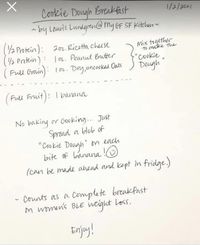 1/2/2021
Cookie Dough Breakfast
~ by Laurie Lundgren @ My GF SF Kitchen ~
(½ Protein): 2oz. Ricotta cheese
(½ Protein): 1oz. Peanut Butter
(Full Grain): 1oz. Dry, uncooked Oats
Mix together
to make the
"Cookie
Dough"
(Full Fruit): 1 banana
No baking or cooking... Just
Spread a blob of
"Cookie Dough" on each
bite of banana! ☺
(Can be made ahead and kept in fridge.)
~ Counts as a Complete breakfast
on women's BLE weight loss.
Enjoy!